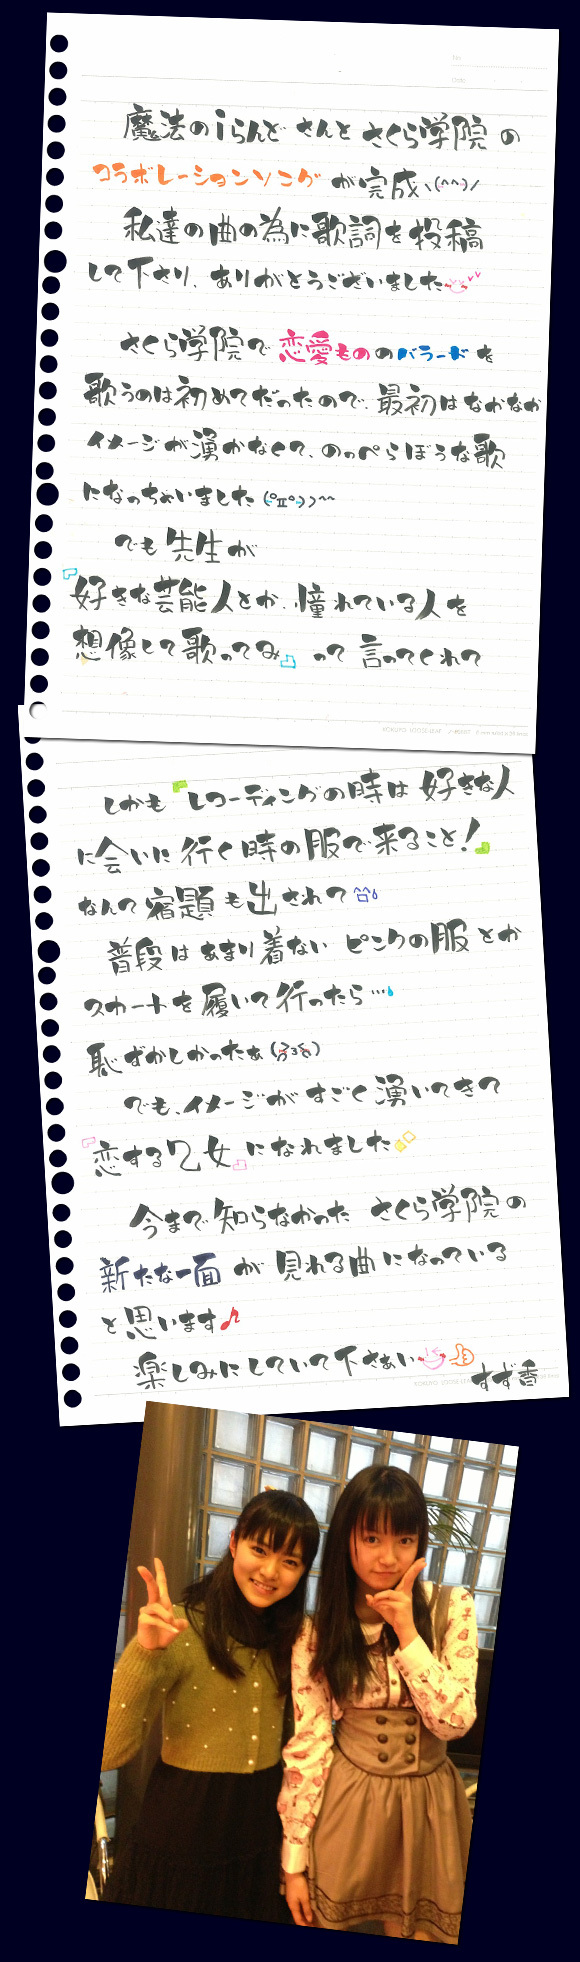 魔法のiらんど さんと さくら学院の
コラボレーションソングが完成\(^^)/
私達の曲の為に歌詞を投稿
して下さり、ありがとうございました
さくら学院で恋愛もののバラードを
歌うのは初めてだったので、最初はなかなか
イメージが湧かなくて、のっぺらぼうな歌
になっちゃいました
でも先生が
『好きな芸能人とか、憧れている人を
想像して歌ってみ』って言ってくれて
しかも『レコーディングの時は好きな人
に会いに行く時の服で来ること!』
なんて宿題も出されて
普段はあまり着ないピンクの服とか
スカートを履いて行ったら…
恥ずかしかったぁ
でも、イメージがすごく湧いてきて
『恋する乙女』になれました
今まで知らなかったさくら学院の
新たな一面が見れる曲になっている
と思います♪
楽しみにしていて下さぁい
すず香